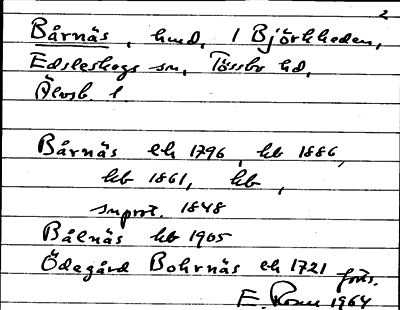 2
Bårnäs, hmd, 1 Björkheden,
Edsleskogs sn, Tössbo hd,
Älvsb. l.
Bårnäs ek 1796, kb 1886,
kb 1861, kb ,
snprot. 1848
Bålnäs kb 1905
Ödegård Bohrnäs ek 1721 forts.
E. Rosn 1964